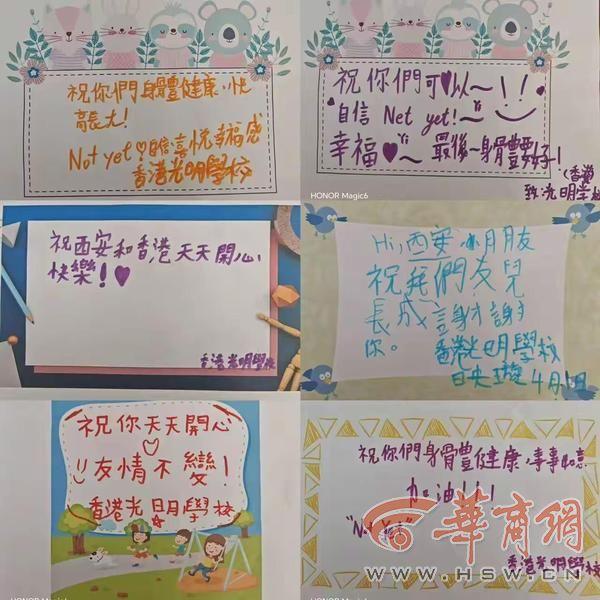 祝你們身體健康，快
高長大！
Not yet 自信喜悅幸福感
香港光明學校
祝你們可以～
自信 Net yet!～
幸福～ 最後～身體要好！
HONOR Magic6
祝西安和香港天天開心、
快樂！
香港光明學校
Hi, 西安小朋友
祝我們友
長成 謝謝
你。
香港光明學校
祝你天天開心
友情不變！
香港光明學校
HONOR Magic6
祝你們身體健康，事事如意，
加油！！！
"Not Yet"
香港光明學校
華商網
WWW.HSW.CN